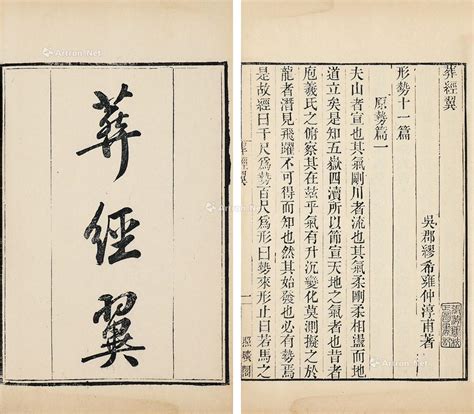 葬經翼
葬經翼
吳郡繆希雍仲淳甫著
形勢十一篇
原勢篇一
夫山者宣也其氣剛川者流也其氣柔剛柔相盪而地
道立矣是知五嶽四瀆所以節宣天地之氣者也昔者
庖羲氏之俯察其在玆乎氣有升沉變化莫測擬之於
龍者潛見飛躍不可得而知也然其始發也必有勢焉
是故經曰千尺爲勢百尺爲形曰勢來形止曰若馬之
葬經翼
一
照曠閣
Artron.Net
Artron.Net